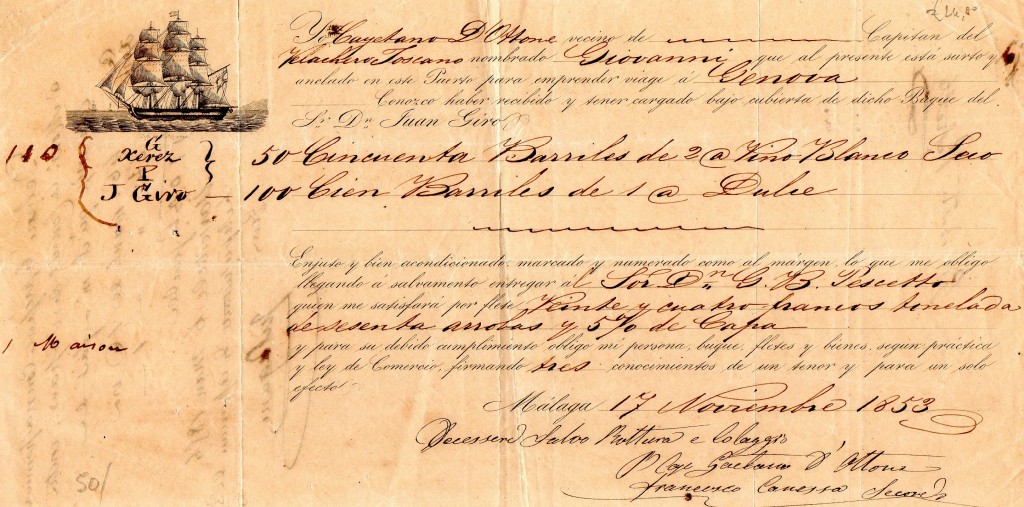 Yo Cayetano D'Ottone vecino de Capitan del
Velachero Toscano nombrado Giovanni que al presente está surto y
anclado en este Puerto para emprender viage á Genova
Conozco haber recibido y tener cargado bajo cubierta de dicho Buque del
Sr. Dn. Juan Giró
G
Xerez
P
J Giro
50 Cincuenta Barriles de 2 @ Vino Blanco Seco
100 Cien Barriles de 1 @ Dulce
Enjuto y bien acondicionado, marcado y numerado como al márgen, lo que me obligo
llegando á salvamento entregar al Sor. Dn. G. B. Pescetto
quien me satisfará por flete Veinte y cuatro francos tonelada
de sesenta arrobas y 5 % de Capa
y para su debido cumplimiento obligo mi persona, buque, fletes y bienes, segun práctica
y ley de Comercio, firmando tres conocimientos de un tenor y para un solo
efecto
Málaga 17 Noviembre 1853
Salvo Rottura e Colaggio
Gaetano D'Ottone
Francesco Canessa
50/